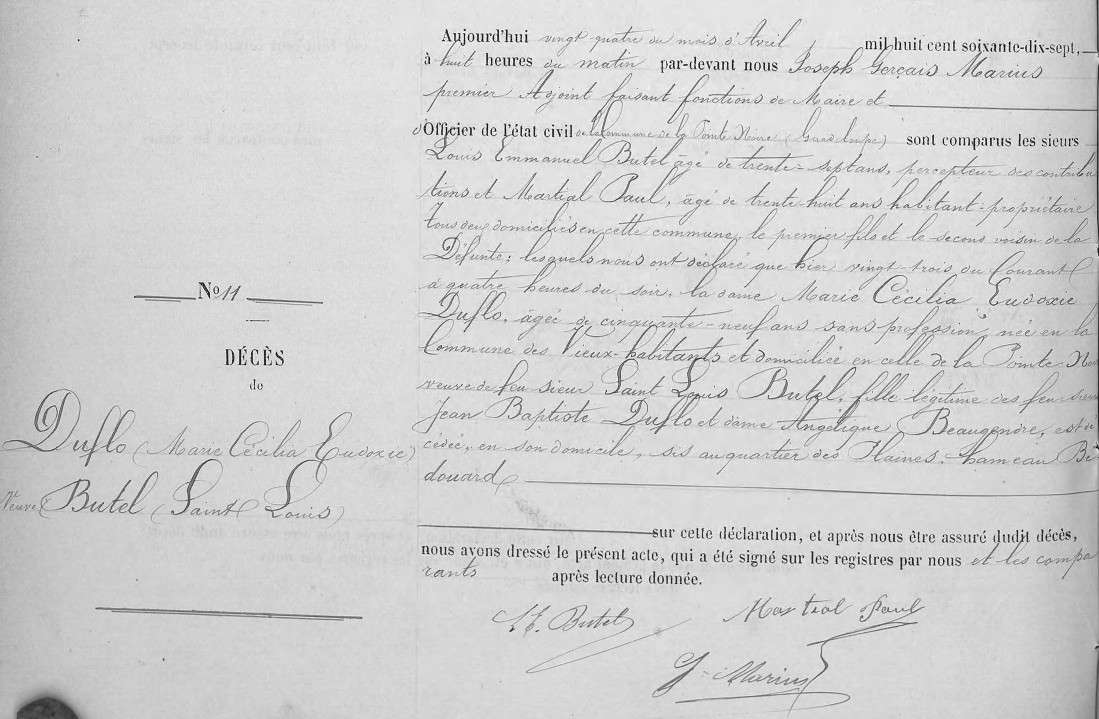 No 11
DÉCÈS
de
Duflo (Marie Cécilia Eudoxie)
Veuve Butel (Saint Louis)
Aujourd'hui vingt quatre du mois d'Avril mil huit cent soixante-dix-sept,
à huit heures du matin par-devant nous Joseph Gerçais Marius
premier Adjoint faisant fonctions de Maire et
Officier de l'état civil de la Commune de la Pointe Noire (Guadeloupe) sont comparus les sieurs
Louis Emmanuel Butel âgé de trente-sept ans, percepteur des contribu
tions et Martial Paul, âgé de trente huit ans habitant-propriétaire
tous deux domiciliés en cette commune, le premier fils et le second voisin de la
Défunte; lesquels nous ont déclaré que hier vingt-trois du Courant
à quatre heures du soir, la dame Marie Cécilia Eudoxie
Duflo, âgée de cinquante-neuf ans sans profession, née en la
Commune des Vieux-habitants et domiciliée en celle de la Pointe-Noi
veuve de feu sieur Saint Louis Butel, fille légitime des feu sieur
Jean Baptiste Duflo et dame Angélique Beaugendre, est dé
cédée, en son domicile, sis au quartier des Plaines, hameau Be
douard
sur cette déclaration, et après nous être assuré dudit décès,
nous avons dressé le présent acte, qui a été signé sur les registres par nous et les compa
rants après lecture donnée.
L E. Butel
Martial Paul
G. Marius